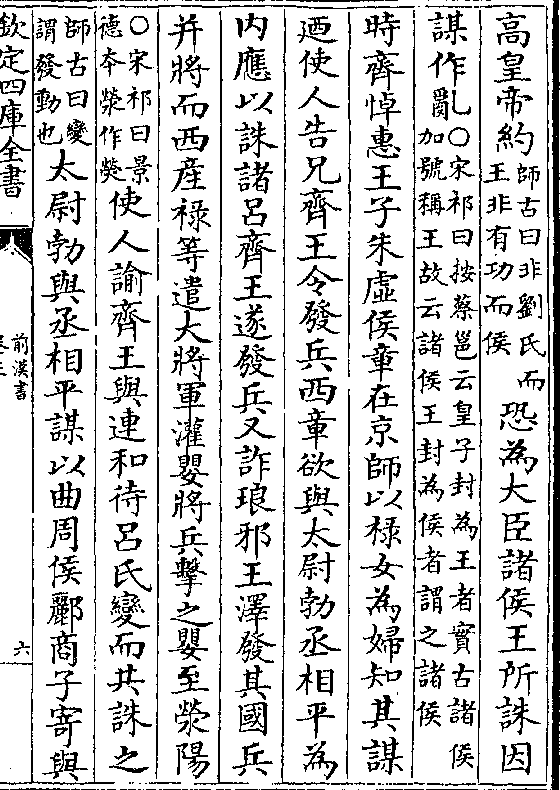 高皇帝約師古曰非劉氏而王非有功而侯恐為大臣諸侯王所誅因
謀作亂〇宋祁曰按蔡邕云皇子封為王者實古諸侯加號稱王故云諸侯王封為侯者謂之諸侯
時齊悼惠王子朱虛侯章在京師以祿女為婦知其謀
廼使人告兄齊王令發兵西章欲與太尉勃丞相平為
内應以誅諸呂齊王遂發兵又詐琅邪王澤發其國兵
并將而西産祿等遣大將軍灌嬰將兵擊之嬰至滎陽
〇宋祁曰景德本滎作熒使人諭齊王與連和待呂氏變而共誅之
師古曰變謂發動也太尉勃與丞相平謀以曲周侯酈商子寄與
欽定四庫全書
前漢書
卷三
六